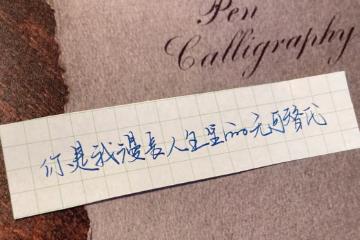 Pen
Calligraphy
你是我漫长人生里的无可替代